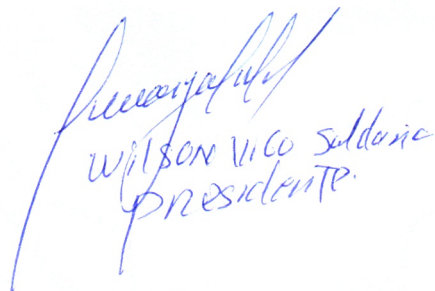 Wilson Vico Saldaña
Presidente.